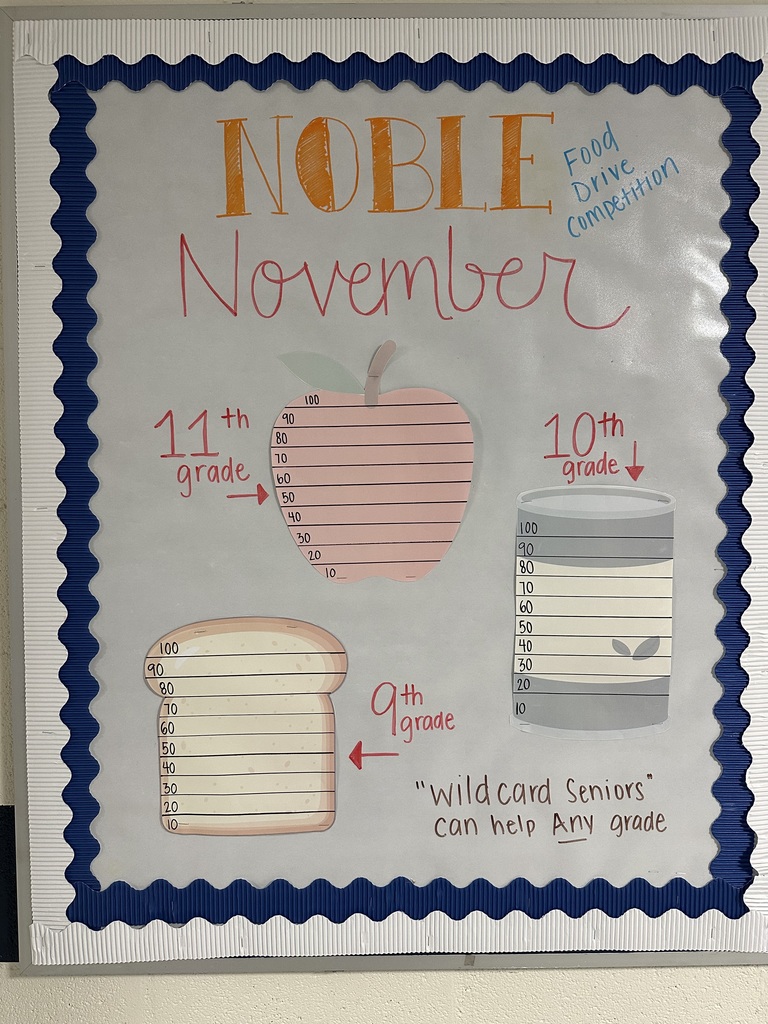 NOBLE
Food
Drive
Competition
November
11th
grade
100
90
80
70
60
50
40
30
20
10
10th
grade
100
90
80
70
60
50
40
30
20
10
100
90
80
70
60
50
40
30
20
10
9th
grade
"Wildcard Seniors"
can help Any grade